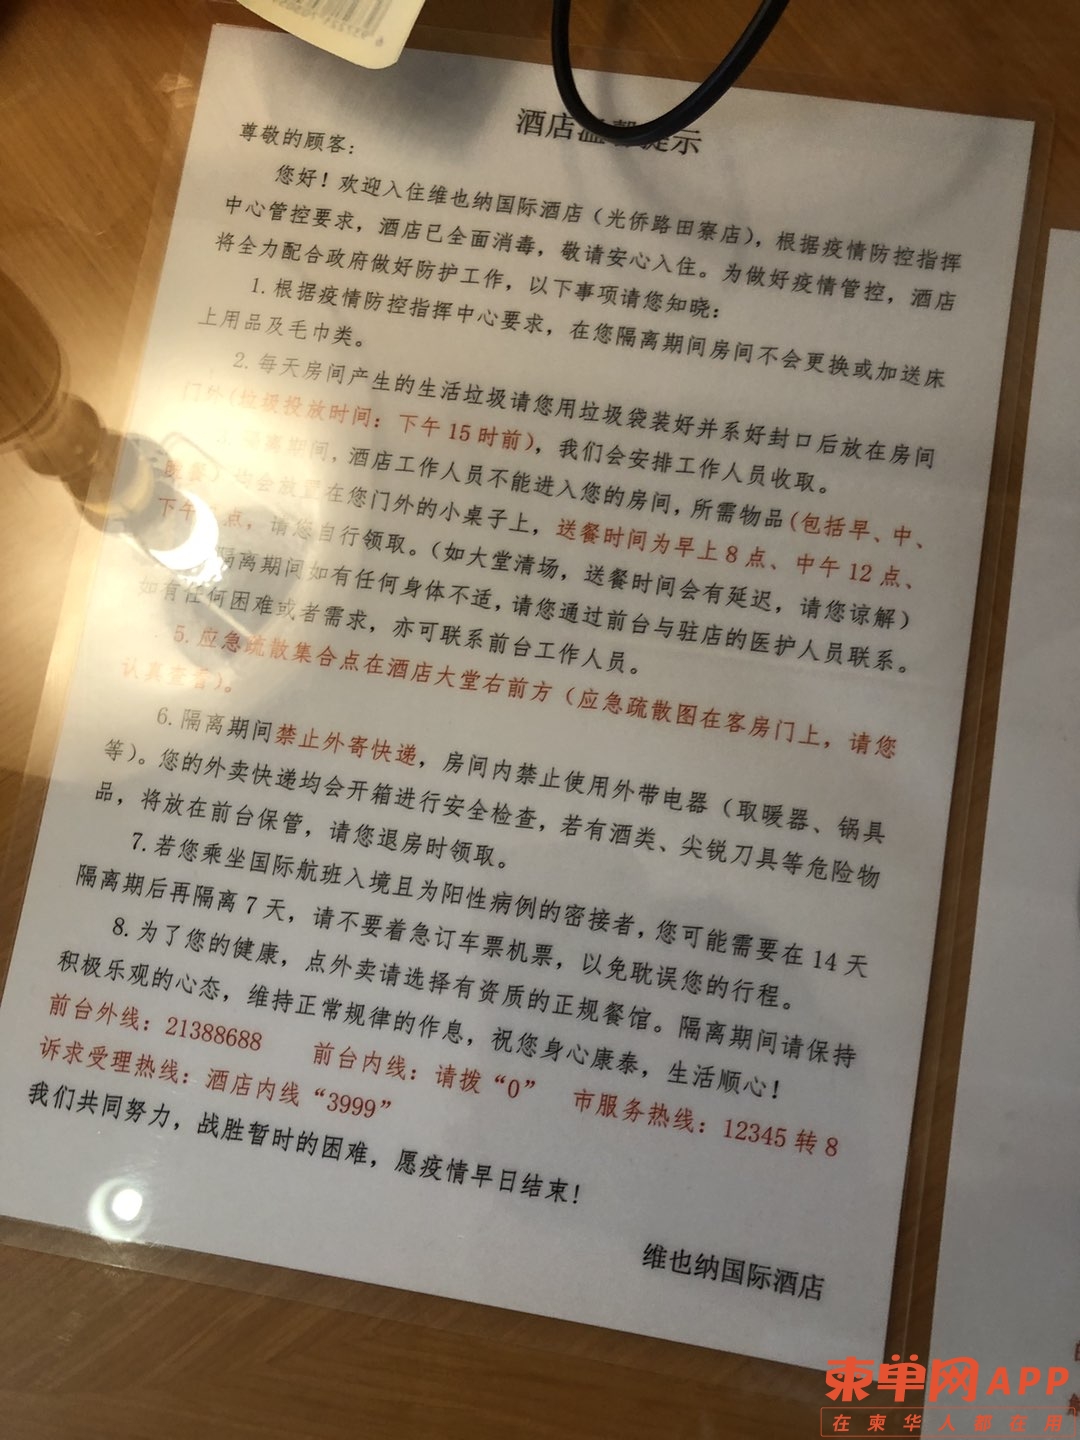 酒店温馨提示
尊敬的顾客：
您好！欢迎入住维也纳国际酒店（光侨路田寮店），根据疫情防控指挥
中心管控要求，酒店已全面消毒，敬请安心入住。为做好疫情管控，酒店
将全力配合政府做好防护工作，以下事项请您知晓：
1.根据疫情防控指挥中心要求，在您隔离期间房间不会更换或加送床
上用品及毛巾类。
2.每天房间产生的生活垃圾请您用垃圾袋装好并系好封口后放在房间
门外(垃圾投放时间：下午15时前)，我们会安排工作人员收取。
隔离期间，酒店工作人员不能进入您的房间，所需物品(包括早、中、
晚餐）均会放置在您门外的小桌子上，送餐时间为早上8点、中午12点、
下午 点，请您自行领取。（如大堂清场，送餐时间会有延迟，请您谅解）
隔离期间如有任何身体不适，请您通过前台与驻店的医护人员联系。
如有任何困难或者需求，亦可联系前台工作人员。
5.应急疏散集合点在酒店大堂右前方（应急疏散图在客房门上，请您
认真 ）。
6.隔离期间禁止外寄快递，房间内禁止使用外带电器（取暖器、锅具
等）。您的外卖快递均会开箱进行安全检查，若有酒类、尖锐刀具等危险物
品，将放在前台保管，请您退房时领取。
7.若您乘坐国际航班入境且为阳性病例的密接者，您可能需要在14天
隔离期后再隔离7天，请不要着急订车票机票，以免耽误您的行程。
8.为了您的健康，点外卖请选择有资质的正规餐馆。隔离期间请保持
积极乐观的心态，维持正常规律的作息，祝您身心康泰，生活顺心！
前台外线：21388688 前台内线：请拨“0” 市服务热线：12345转8
诉求受理热线：酒店内线“3999”
我们共同努力，战胜暂时的困难，愿疫情早日结束！
维也纳国际酒店
柬单网APP
在柬华人都在用